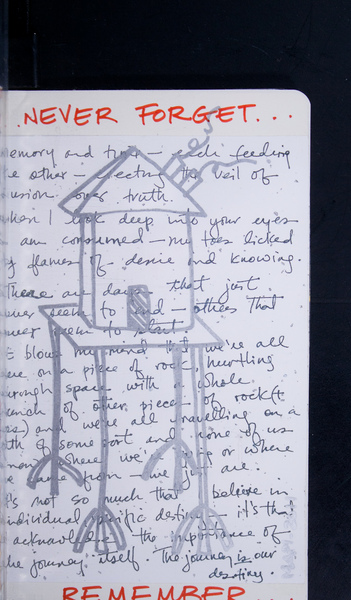 .NEVER FORGET...
emory and time – each feeding
e other – erecting the veil of
usion over truth.
when I look deep into your eyes
am consumed – my toes licked
y flames of desire and knowing.
There are days that just
never seem to end – others that
never seem to start.
t blows my mind that we're all
ere on a piece of rock, hurtling
through space with a whole
unch of other pieces of rock(t
es) and we're all travelling on a
th of some sort and none of us
know where we're going or where
e came from – we just are.
t's not so much that I believe in
individual specific destiny – it's that
acknowledge the importance of
he journey itself. The journey is our
destiny.
REMEMBER...